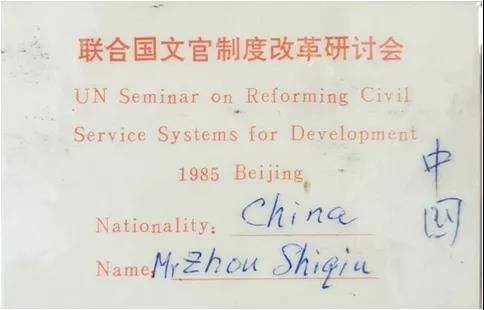 联合国文官制度改革研讨会
UN Seminar on Reforming Civil
Service Systems for Development
1985 Beijing
Nationality: China
Name: Mr Zhou Shiqiu
中国